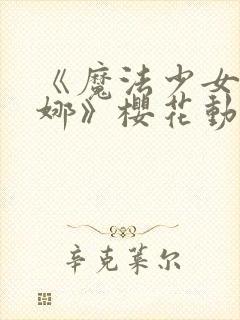 《魔法少女
娜》櫻花動
辛克莱尔